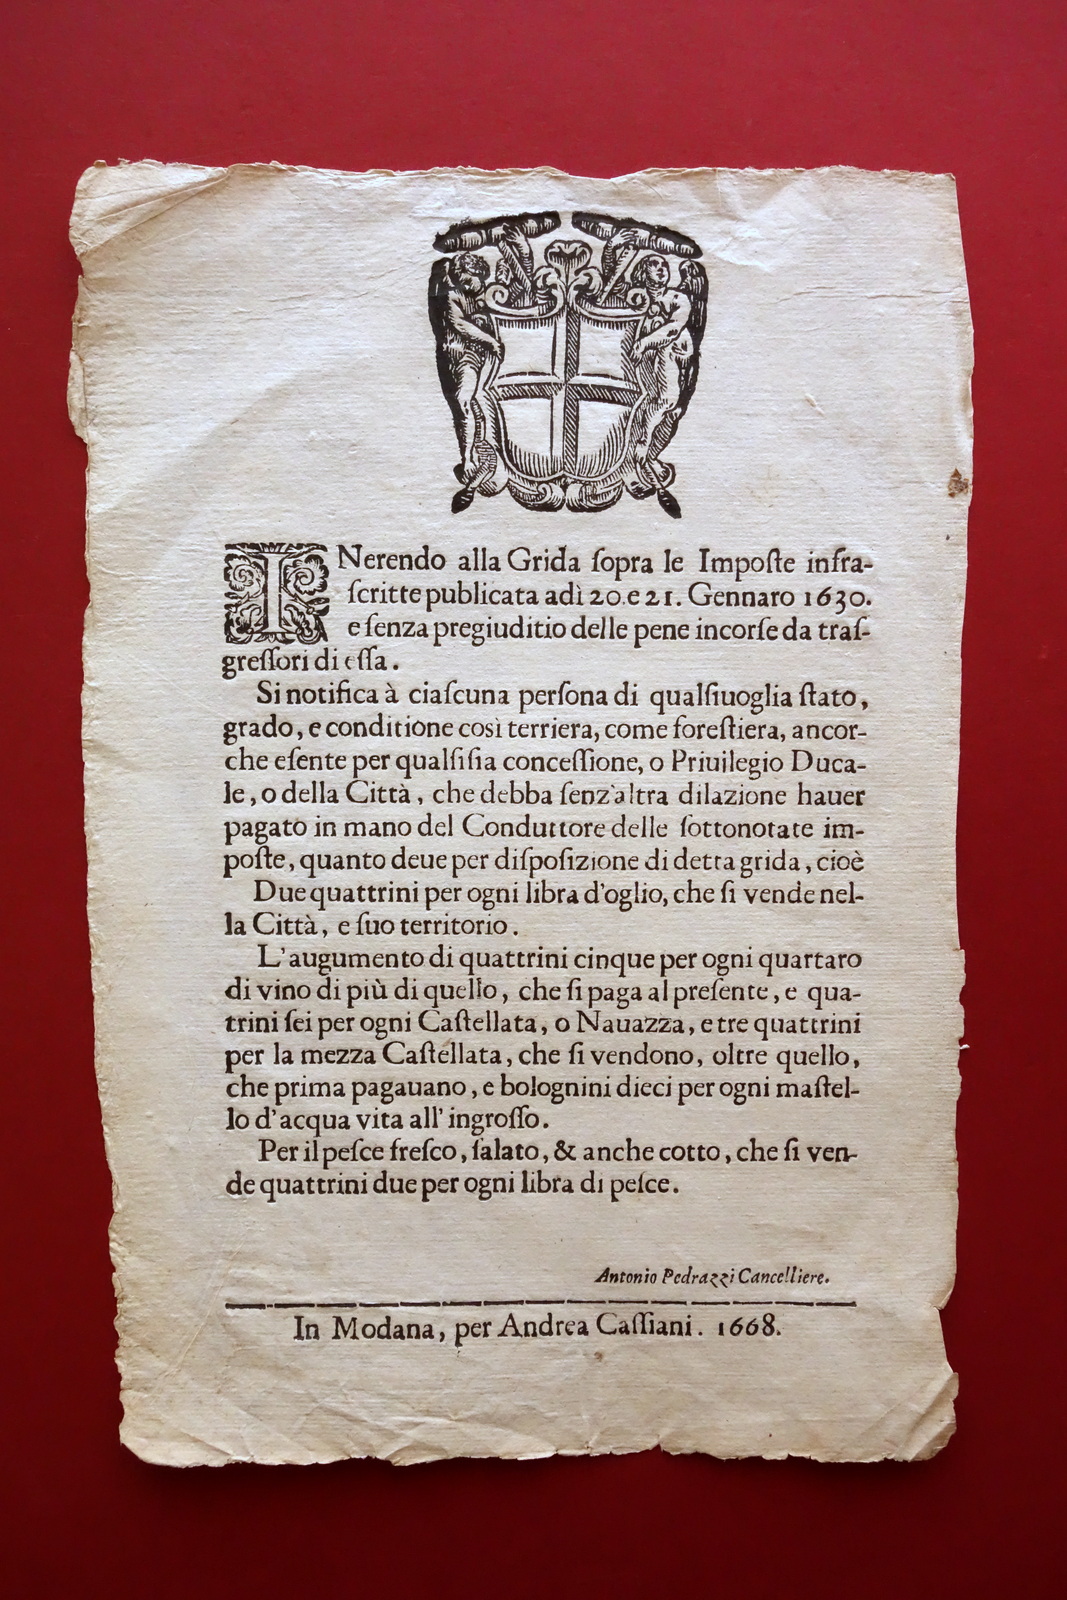 INerendo alla Grida ſopra le Impoſte infra-
ſcritte publicata adì 20. e 21. Gennaro 1630.
e ſenza pregiuditio delle pene incorſe da traſ-
greſſori di eſſa.
Si notifica à ciaſcuna perſona di qualſiuoglia ſtato,
grado, e conditione così terriera, come foreſtiera, ancor-
che eſente per qualſiſia conceſſione, o Priuilegio Duca-
le, o della Città, che debba ſenz'altra dilazione hauer
pagato in mano del Conduttore delle ſottonotate im-
poſte, quanto deue per diſpoſizione di detta grida, cioè
Due quattrini per ogni libra d'oglio, che ſi vende nel-
la Città, e ſuo territorio.
L'augumento di quattrini cinque per ogni quartaro
di vino di più di quello, che ſi paga al preſente, e qua-
trini ſei per ogni Caſtellata, o Nauazza, e tre quattrini
per la mezza Caſtellata, che ſi vendono, oltre quello,
che prima pagauano, e bolognini dieci per ogni maſtel-
lo d'acqua vita all' ingroſſo.
Per il peſce freſco, ſalato, & anche cotto, che ſi ven-
de quattrini due per ogni libra di peſce.
Antonio Pedrazzi Cancelliere.
In Modana, per Andrea Caſſiani. 1668.